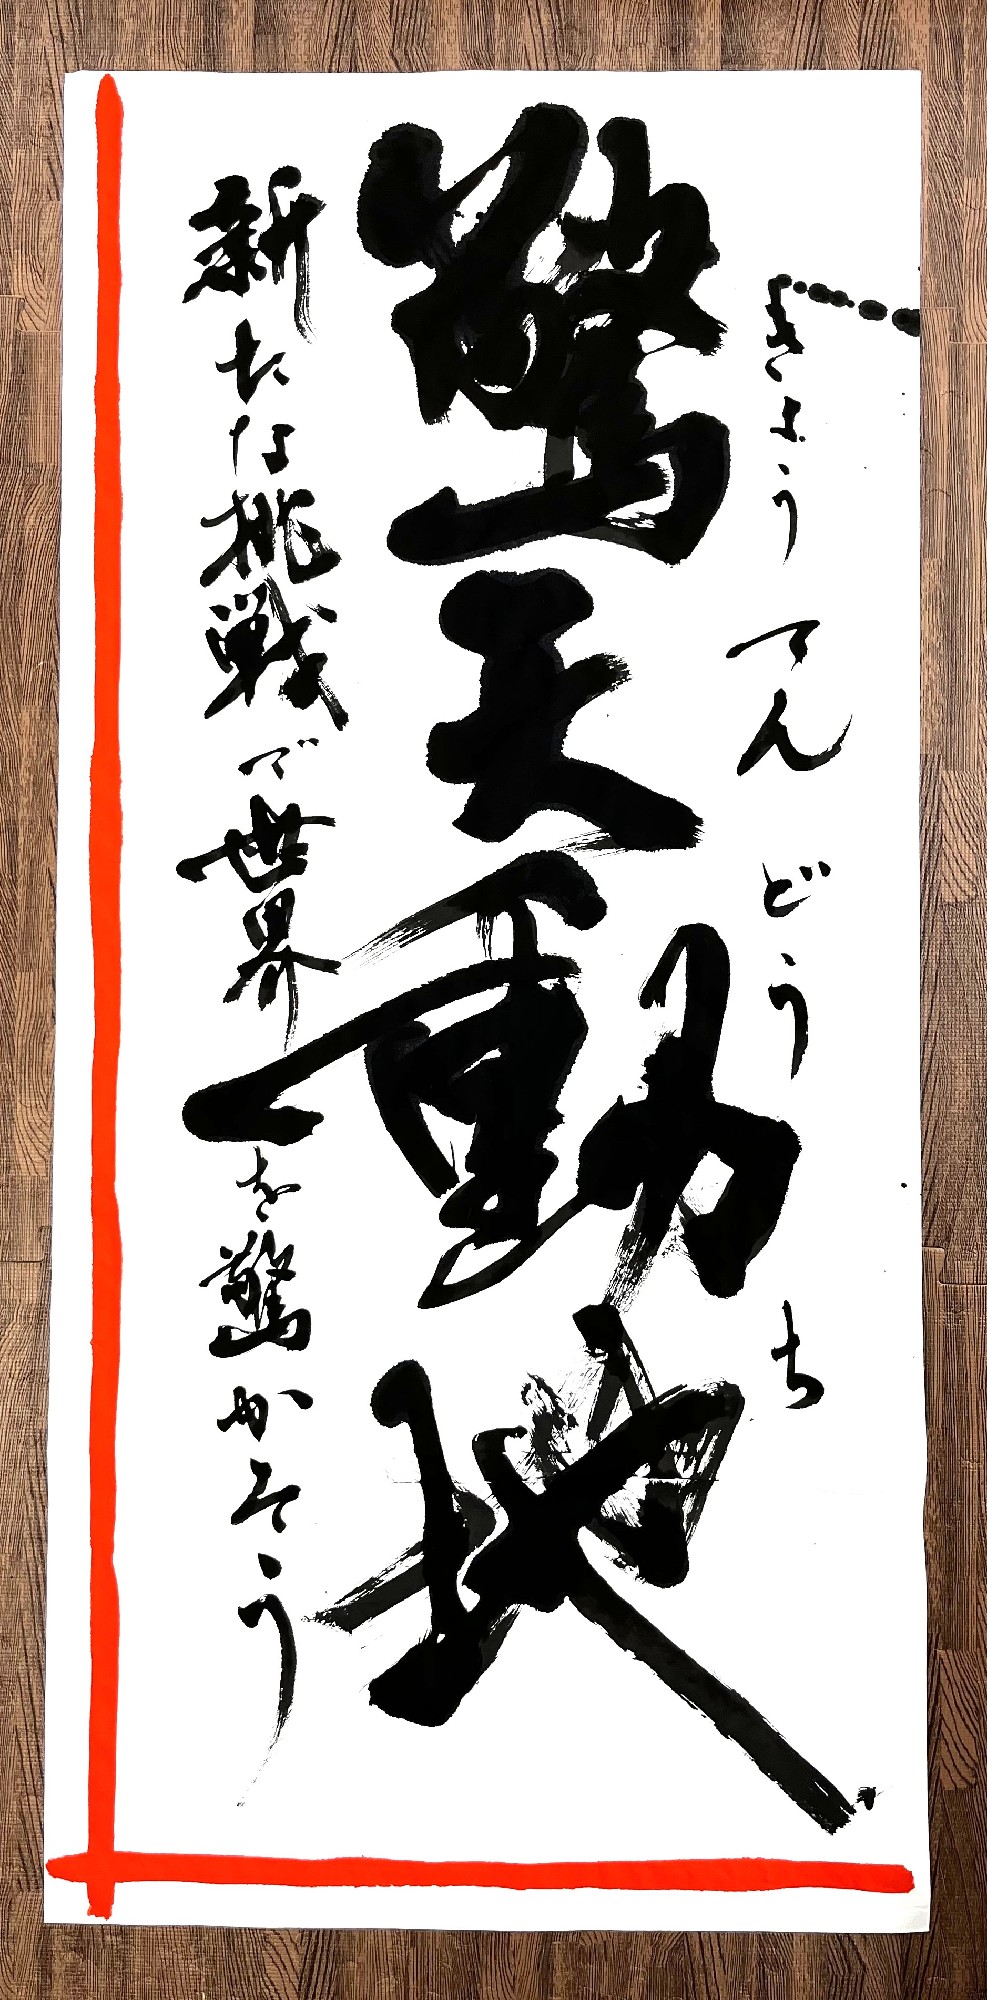 きょうてんどうち
驚天動地
新たな挑戦で世界を驚かそう